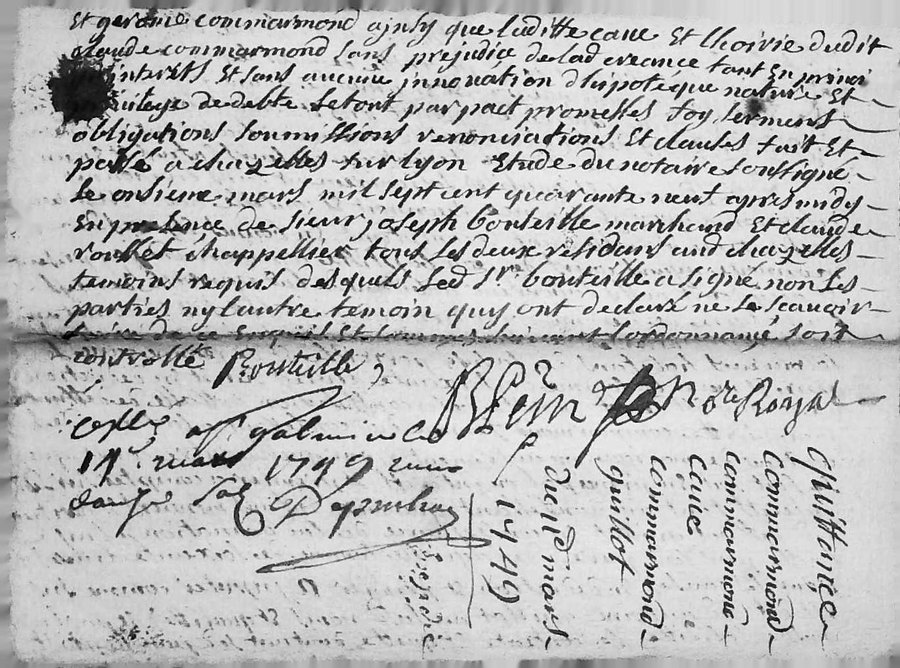 Et gerome commarmond ainsy que laditte cave Et lhoirie dudit
claude commarmond sans prejudice de lad creance tant En princi
interets Et sans aucune innonation dhipotéque nature Et
privilege de debte Le tout par pact promesses foy serments
obligations soumissions renonciations Et clauses fait Et
passé a chazelles sur lyon Etude du notaire soussigné
Le onsieme mars mil sept cent quarante neuf apres midy
En presence de sieur joseph bouteille marchand Et claude
roullet chappellier tous Les deux residans aud chazelles
temoins requis desquels Led Sr bouteille a signé non Les
parties ny lautre temoin quy ont declaré ne Le scauoir
de ce Enquis Et sommes suivant Lordonnance soit
controllé Bouteille
nore Royal
Conlle a St galmier le
14e mars 1749
quittance
commarmond
commarmond
cave
commarmond
guillot
du 11e mars
1749
Expedié